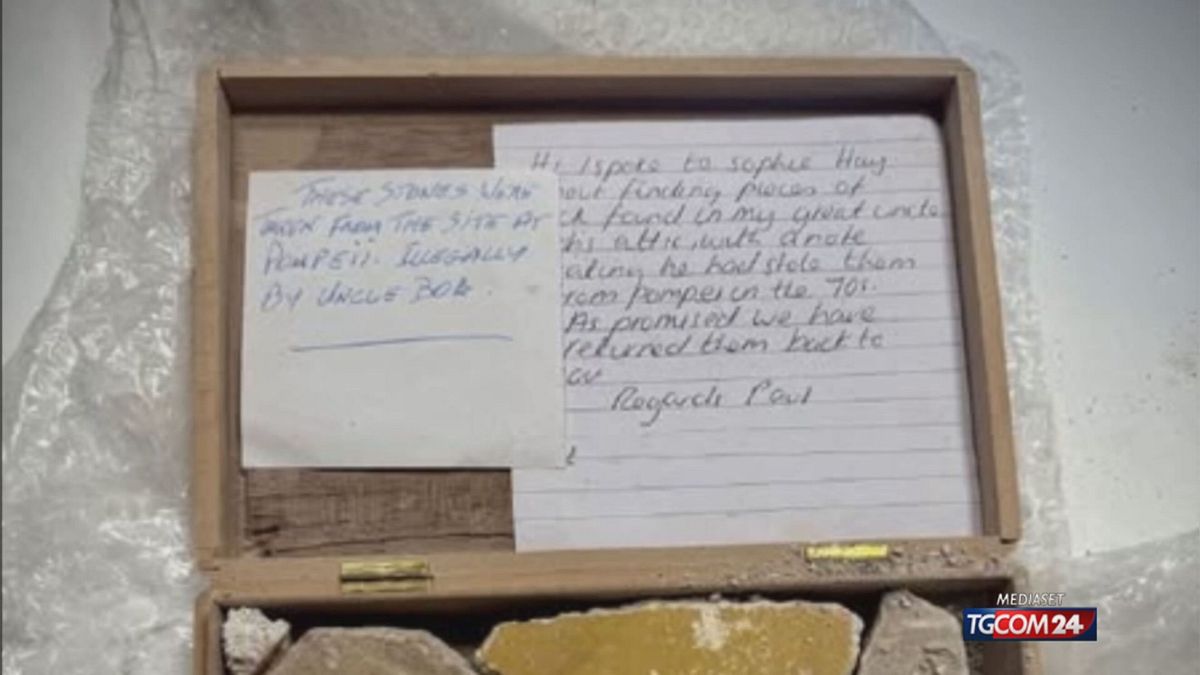 THESE STONES WERE
TAKEN FROM THE SITE AT
POMPEII. ILLEGALLY
BY UNCLE BOB.
Hi I spoke to Sophie Hay
out finding pieces of
found in my great uncle
his attic, with a note
he had stole them
rom pompei in the 70s.
As promised we have
returned them back to
ou
Regards Paul
MEDIASET
TGCOM24